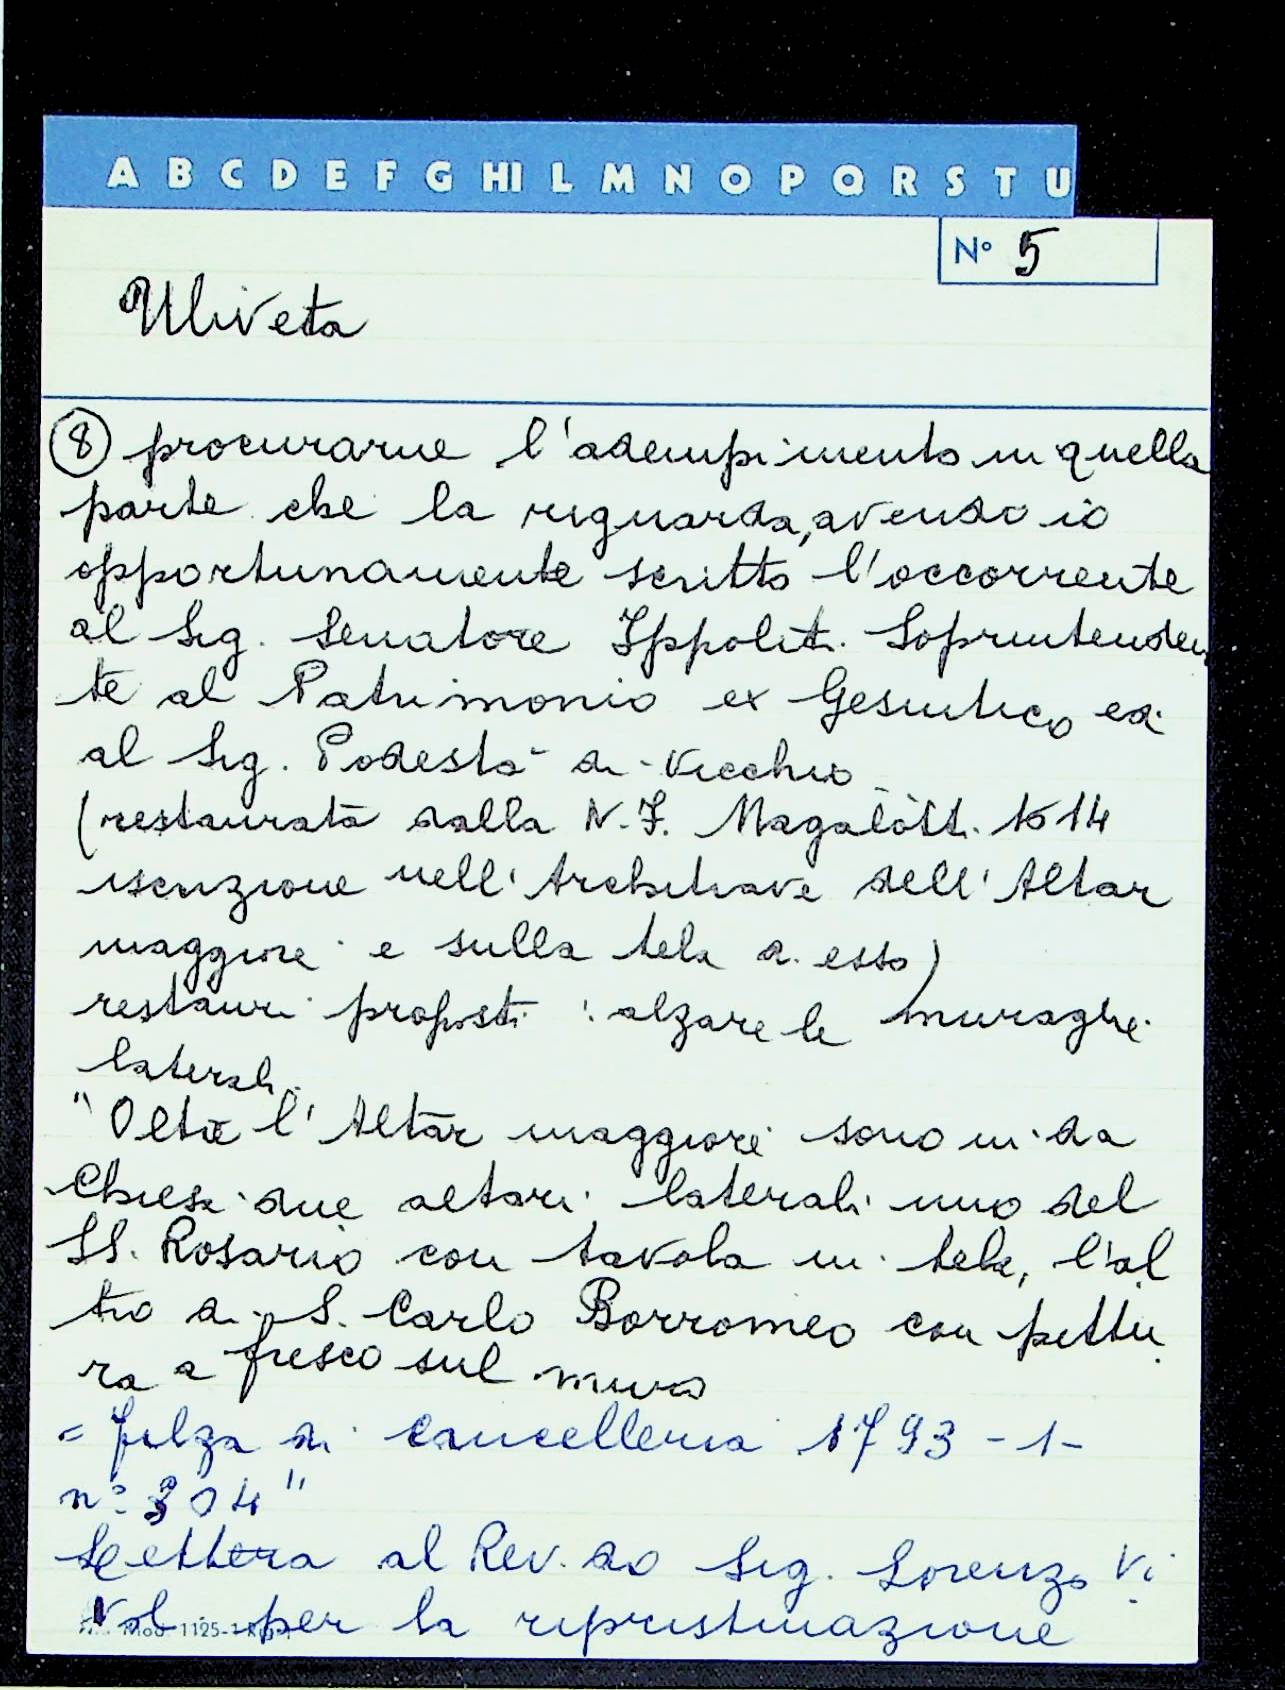 A B C D E F G HI L M N O P Q R S T U
N° 5
Uliveta
⑧ procurarne l'adempimento in quella
parte che la riguarda, avendo io
opportunamente scritto l'occorrente
al Sig. Senatore Ippoliti Soprintenden
te al Patrimonio ex Gesuitico ed
al Sig. Podestà di Vicchio
(restaurata dalla N.F. Magalotti 1614
iscrizione nell'Architrave dell'Altar
maggiore e sulla tela di esso)
restauri proposti: alzare le muraglie
laterali.
"Oltre l'Altar maggiore sono in da
Chiesa due altari laterali uno del
SS. Rosario con tavola in tela, l'al
tro di S. Carlo Borromeo con pittu
ra a fresco sul muro
= filza di Cancelleria 1793 - 1 -
n° 304"
Lettera al Rev.do Sig. Lorenzo Vi
per la ripristinazione
Mod. 1125-1